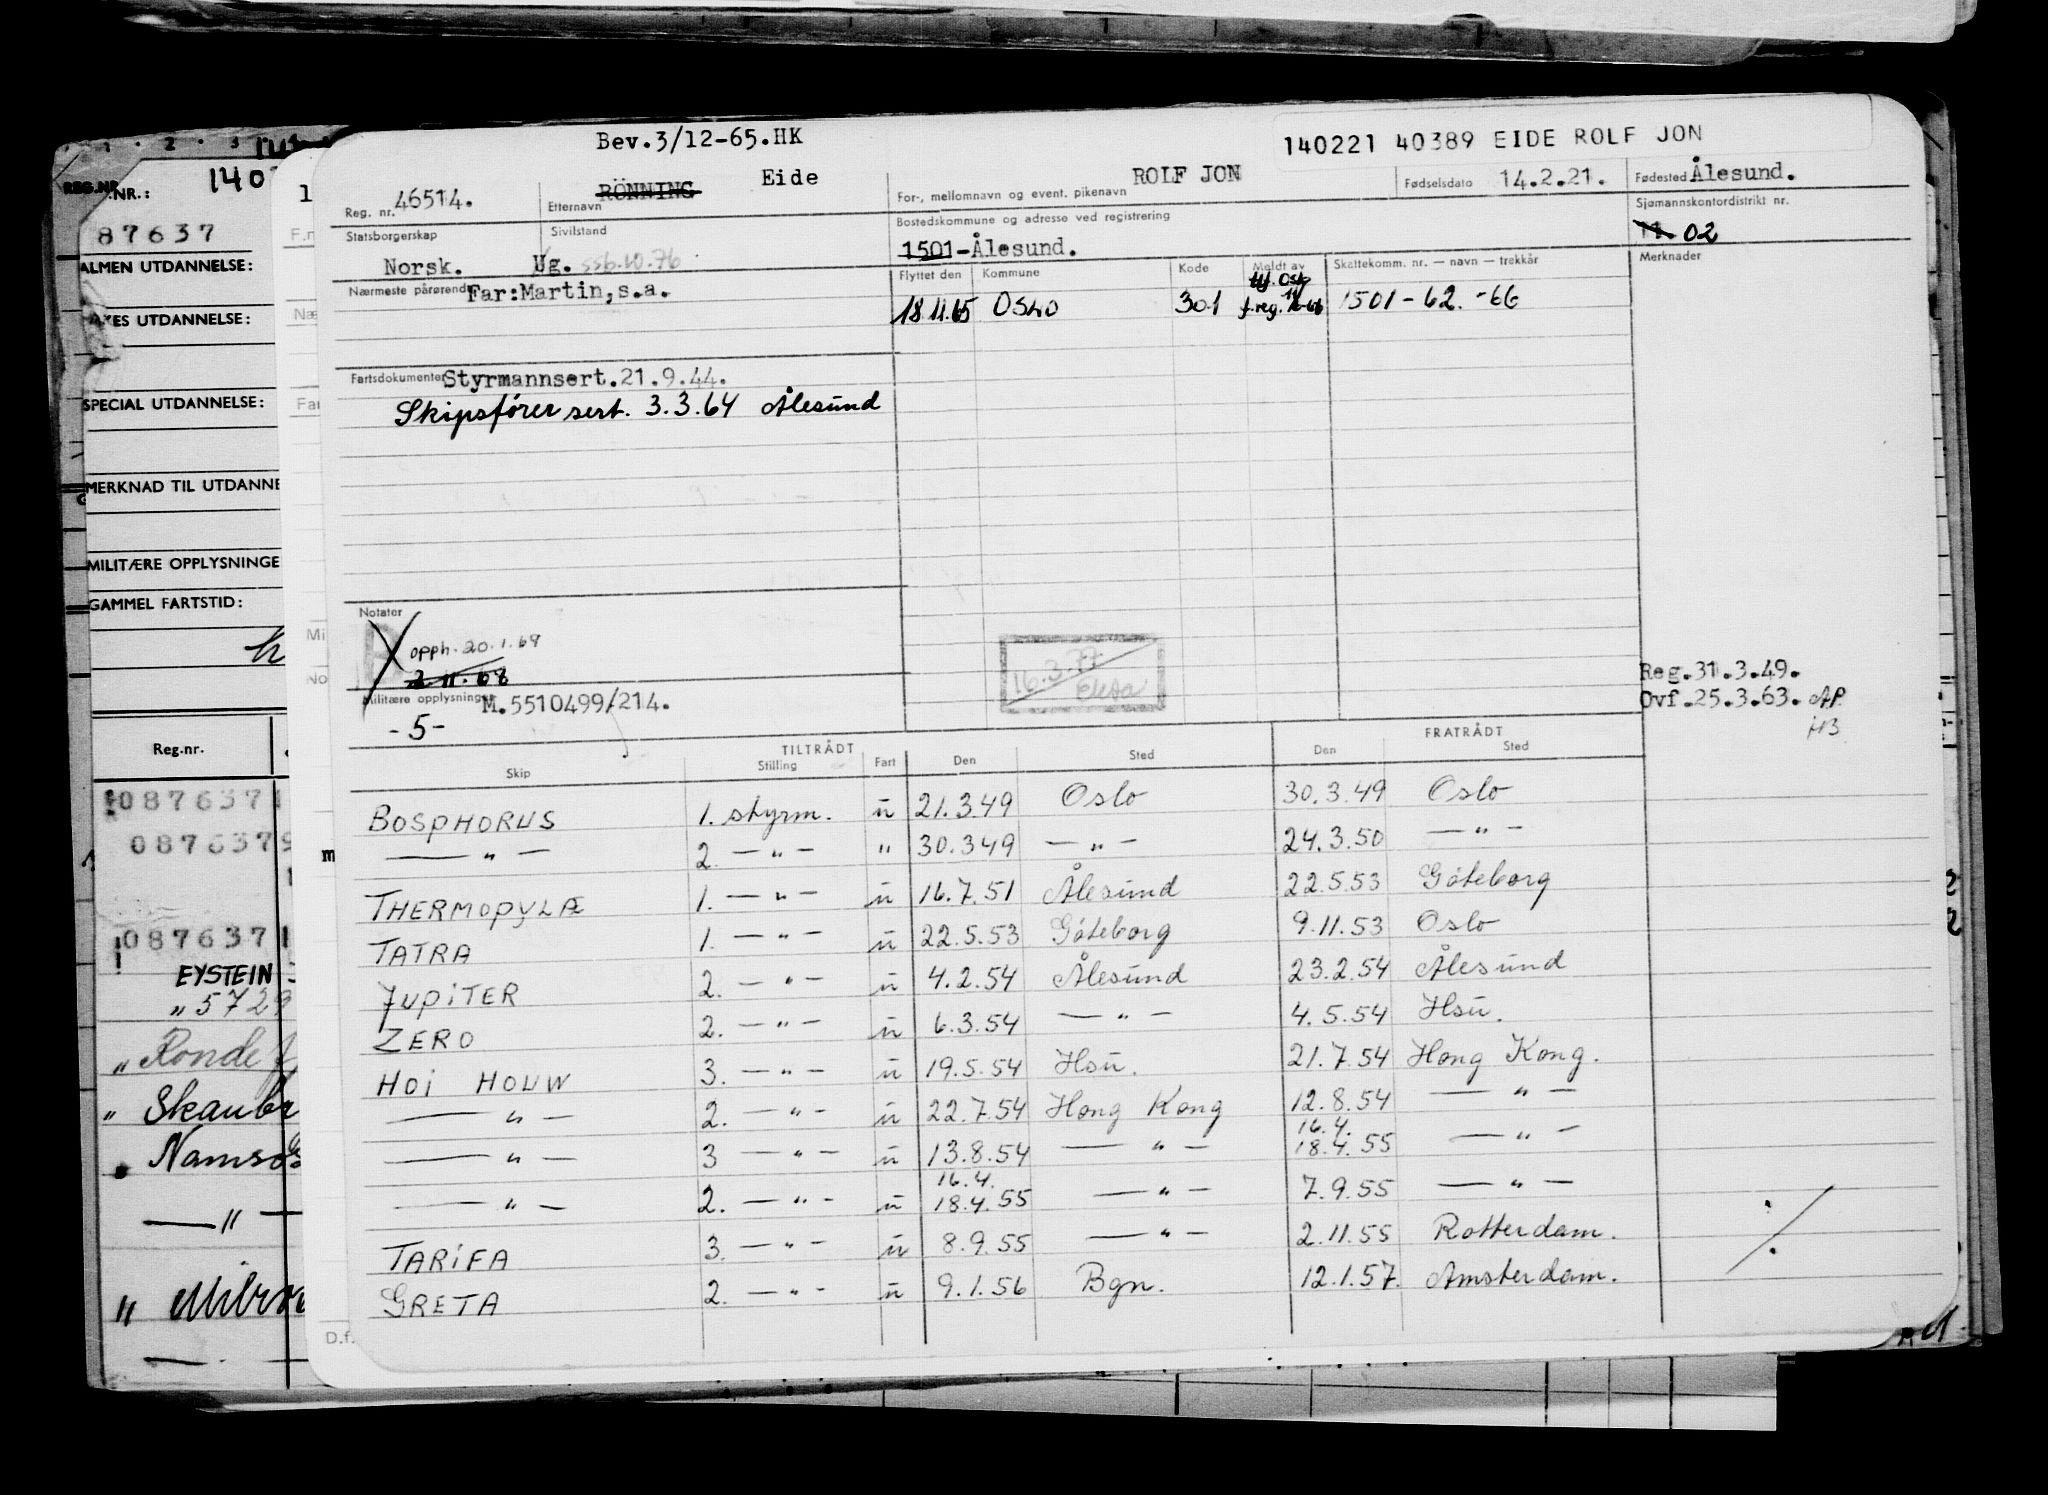 Bev.3/12-65.HK
140221 40389 EIDE ROLF JON
Reg. nr. 46514.
Etternavn RÖNNING Eide
For-, mellomnavn og event. pikenavn ROLF JON
Fødselsdato 14.2.21.
Fødested Ålesund.
Statsborgerskap Norsk.
Sivilstand Ug. 556.10.76
Bostedskommune og adresse ved registrering
1501-Ålesund.
Sjømannskontordistrikt nr.
11. 02
Nærmeste pårørende Far:Martin,s.a.
Flyttet den Kommune Kode Meldt av Skattekomm. nr. — navn — trekkår Merknader
18.11.65 OSLO 301 f.reg. 1501-62.-66
Fartsdokumenter Styrmannsert.21.9.44.
Skipsfører sert. 3.3.64 Ålesund
Notater
opph. 20.1.69
2.11.68
16.3.77
Elisa
Militære opplysninger M.5510499/214.
-5-
Reg.31.3.49.
Ovf.25.3.63. AP.
HB
TILTRÅDT FRATRÅDT
Skip Stilling Fart Den Sted Den Sted
BOSPHORUS 1. styrm. u 21.3.49 Oslo 30.3.49 Oslo
— " — 2. — " — " 30.349 — " — 24.3.50 — " —
THERMOPYLÆ 1. — " — u 16.7.51 Ålesund 22.5.53 Göteborg
TATRA 1. — " — u 22.5.53 Göteborg 9.11.53 Oslo
JUPITER 2. — " — u 4.2.54 Ålesund 23.2.54 Ålesund
ZERO 2. — " — u 6.3.54 — " — 4.5.54 Hsu.
HOI HOUW 3. — " — u 19.5.54 Hsu. 21.7.54 Hong Kong.
— " — 2. — " — u 22.7.54 Hong Kong 12.8.54 — " —
— " — 3 — " — u 13.8.54 — " — 16.4. 18.4.55 — " —
— " — 2. — " — u 16.4. 18.4.55 — " — 7.9.55 — " —
TARIFA 3. — " — u 8.9.55 — " — 2.11.55 Rotterdam.
GRETA 2. — " — u 9.1.56 Bgn. 12.1.57. Amsterdam.
REG.NR.
NR.: 140
87637
ALMEN UTDANNELSE:
UTDANNELSE:
SPECIAL UTDANNELSE:
MERKNAD TIL UTDANNE
MILITÆRE OPPLYSNINGE
GAMMEL FARTSTID:
Reg.nr.
0876371
0876379
0876371
EYSTEIN
" 5729
" Ronde
" Skaubr
Namsos
— " —
D.f.